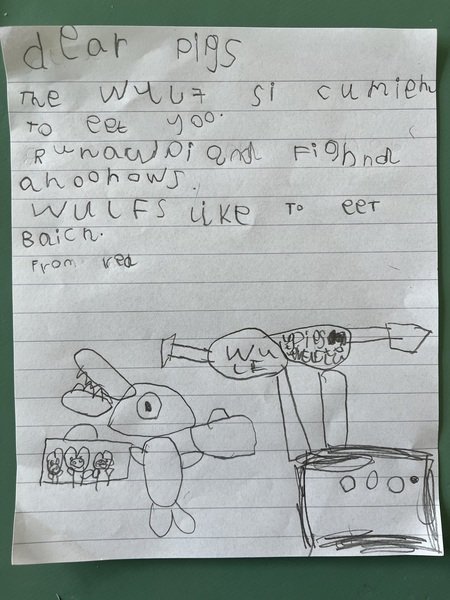 dear pigs
The WULF si cumieh
To eet yoo.
Runawai and Fighnd
ahoohows.
WULFS like To eet
Baich.
From red
WU
LF
pigs